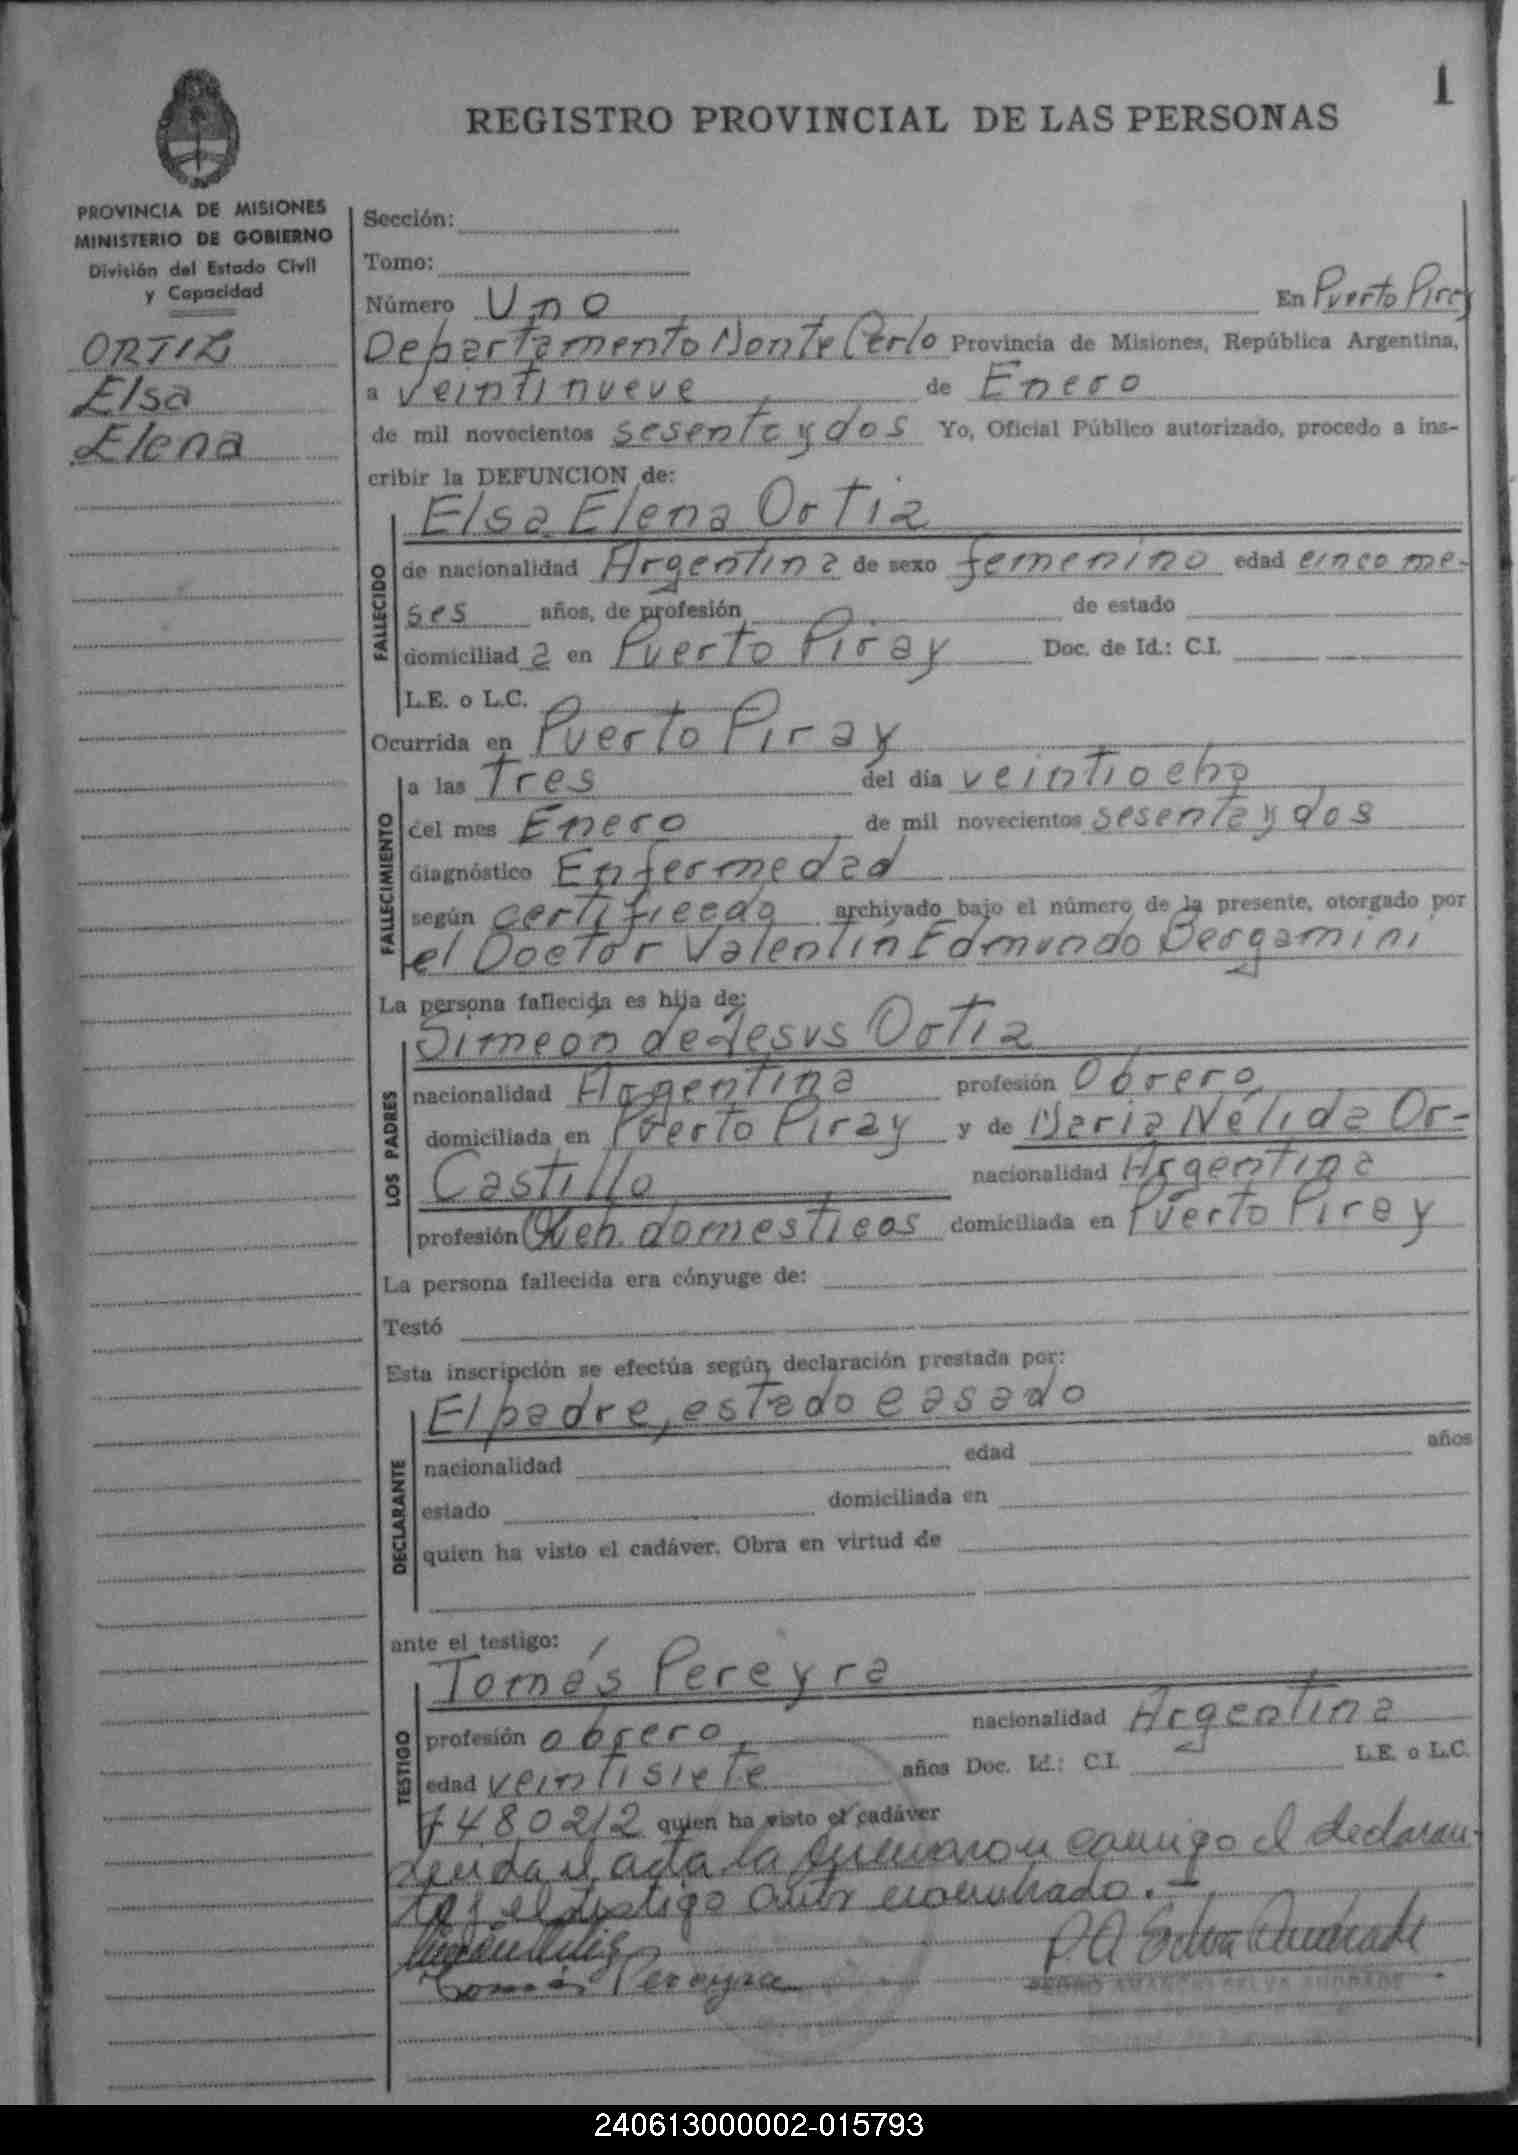 1
REGISTRO PROVINCIAL DE LAS PERSONAS
PROVINCIA DE MISIONES
MINISTERIO DE GOBIERNO
División del Estado Civil
y Capacidad
ORTIZ
Elsa
Elena
Sección:
Tomo:
Número Uno En Puerto Piray
Departamento Monte Carlo Provincia de Misiones, República Argentina,
a veintinueve de Enero
de mil novecientos sesenta y dos Yo, Oficial Público autorizado, procedo a ins-
cribir la DEFUNCION de:
Elsa Elena Ortiz
FALLECIDO
de nacionalidad Argentina de sexo femenino edad cinco me-
ses años, de profesión de estado
domiciliada en Puerto Piray Doc. de Id.: C.I.
L.E. o L.C.
Ocurrida en Puerto Piray
FALLECIMIENTO
a las Tres del día veintiocho
del mes Enero de mil novecientos sesenta y dos
diagnóstico Enfermedad
según certificado archivado bajo el número de la presente, otorgado por
el Doctor Valentin Edmundo Bergamini
La persona fallecida es hija de:
LOS PADRES
Simeon de Jesus Ortiz
nacionalidad Argentina profesión Obrero
domiciliada en Puerto Piray y de Maria Nélida Or-
Castillo nacionalidad Argentina
profesión Queh. domesticos domiciliada en Puerto Piray
La persona fallecida era cónyuge de:
Testó
Esta inscripción se efectúa según declaración prestada por:
DECLARANTE
El padre, estado casado
nacionalidad edad años
estado domiciliada en
quien ha visto el cadáver. Obra en virtud de
ante el testigo:
TESTIGO
Tomás Pereyra
profesión obrero nacionalidad Argentina
edad veintisiete años Doc. Id.: C.I. L.E. o L.C.
7480212 quien ha visto el cadáver
Leida el acta la firmaron conmigo el declaran-
te y el testigo antes nombrado.-
Tomás Pereyra
P.A. Selva Andrade
PEDRO AMANCIO SELVA ANDRADE
240613000002-015793